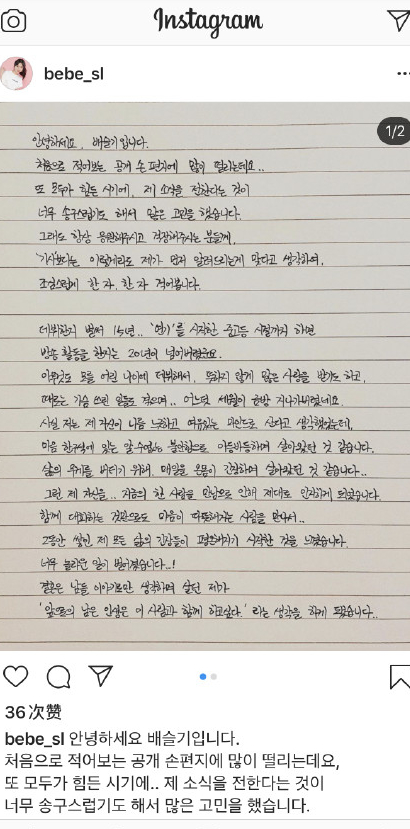 Instagram
bebe_sl
1/2
안녕하세요, 배슬기입니다.
처음으로 적어보는 공개 손편지에 많이 떨리는데요..
또 모두가 힘든 시기에, 제 소식을 전한다는 것이
너무 송구스럽기도 해서 많은 고민을 했습니다.
그래도 항상 응원해주시고 걱정해주시는 분들께,
기사보다는 이렇게라도 제가 먼저 알려드리는게 맞다고 생각하여,
조심스럽게 한 자, 한 자 적어봅니다.
데뷔한지 벌써 15년.. '연기'를 시작한 중고등 시절까지 하면
방송 활동을 한지는 20년이 넘어버렸군요.
아무것도 모를 어린 나이에 데뷔해서, 뜻하지 않게 많은 사랑을 받기도 하고,
때로는 가슴 쓰린 일들도 적으며.. 어느덧 세월이 금방 지나가버렸네요.
사실 저는 제 자신이 나름 느긋하고 여유있는 마인드로 산다고 생각했었는데,
마음 한구석에 있는 알 수 없는 불안함으로 아등바등하며 살아왔던 것 같습니다.
삶의 무게를 버티기 위해, 매일을 온몸이 긴장하며 살아왔던 것 같습니다..
그런 제 자신을.. 지금의 한 사람을 만남으로 인해 제대로 인지하게 되었습니다.
함께 대화하는 것만으로도 마음이 따뜻해지는 사람을 만나서..
그동안 쌓인 제 모든 삶의 긴장들이 평온해지기 시작한 것을 느꼈습니다.
너무 놀라운 일이 벌어졌습니다..!
결혼은 남들 이야기로만 생각하며 살던 제가
'앞으로의 남은 인생은 이 사람과 함께 하고싶다.' 라는 생각을 하게 됐습니다..
36次赞
bebe_sl 안녕하세요 배슬기입니다.
처음으로 적어보는 공개 손편지에 많이 떨리는데요,
또 모두가 힘든 시기에.. 제 소식을 전한다는 것이
너무 송구스럽기도 해서 많은 고민을 했습니다.